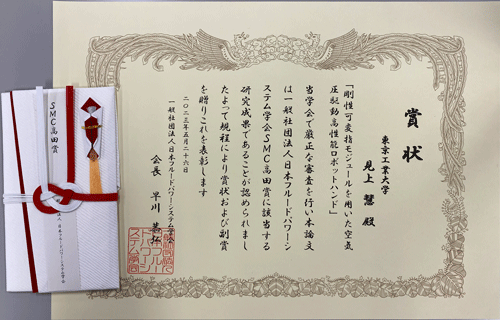 賞状
東京工業大学
見上 慧 殿
「剛性可変指モジュールを用いた空気
圧駆動高性能ロボットハンド」
当学会で厳正な審査を行い本論文
は一般社団法人日本フルードパワーシ
ステム学会SMC高田賞に該当する
研究成果であることが認められまし
たよって規程により賞状および副賞
を贈りこれを表彰します
二〇二三年五月二十六日
一般社団法人日本フルードパワーシステム学会
会長 早川 恭弘
SMC高田賞
日本フルードパワーシステム学会